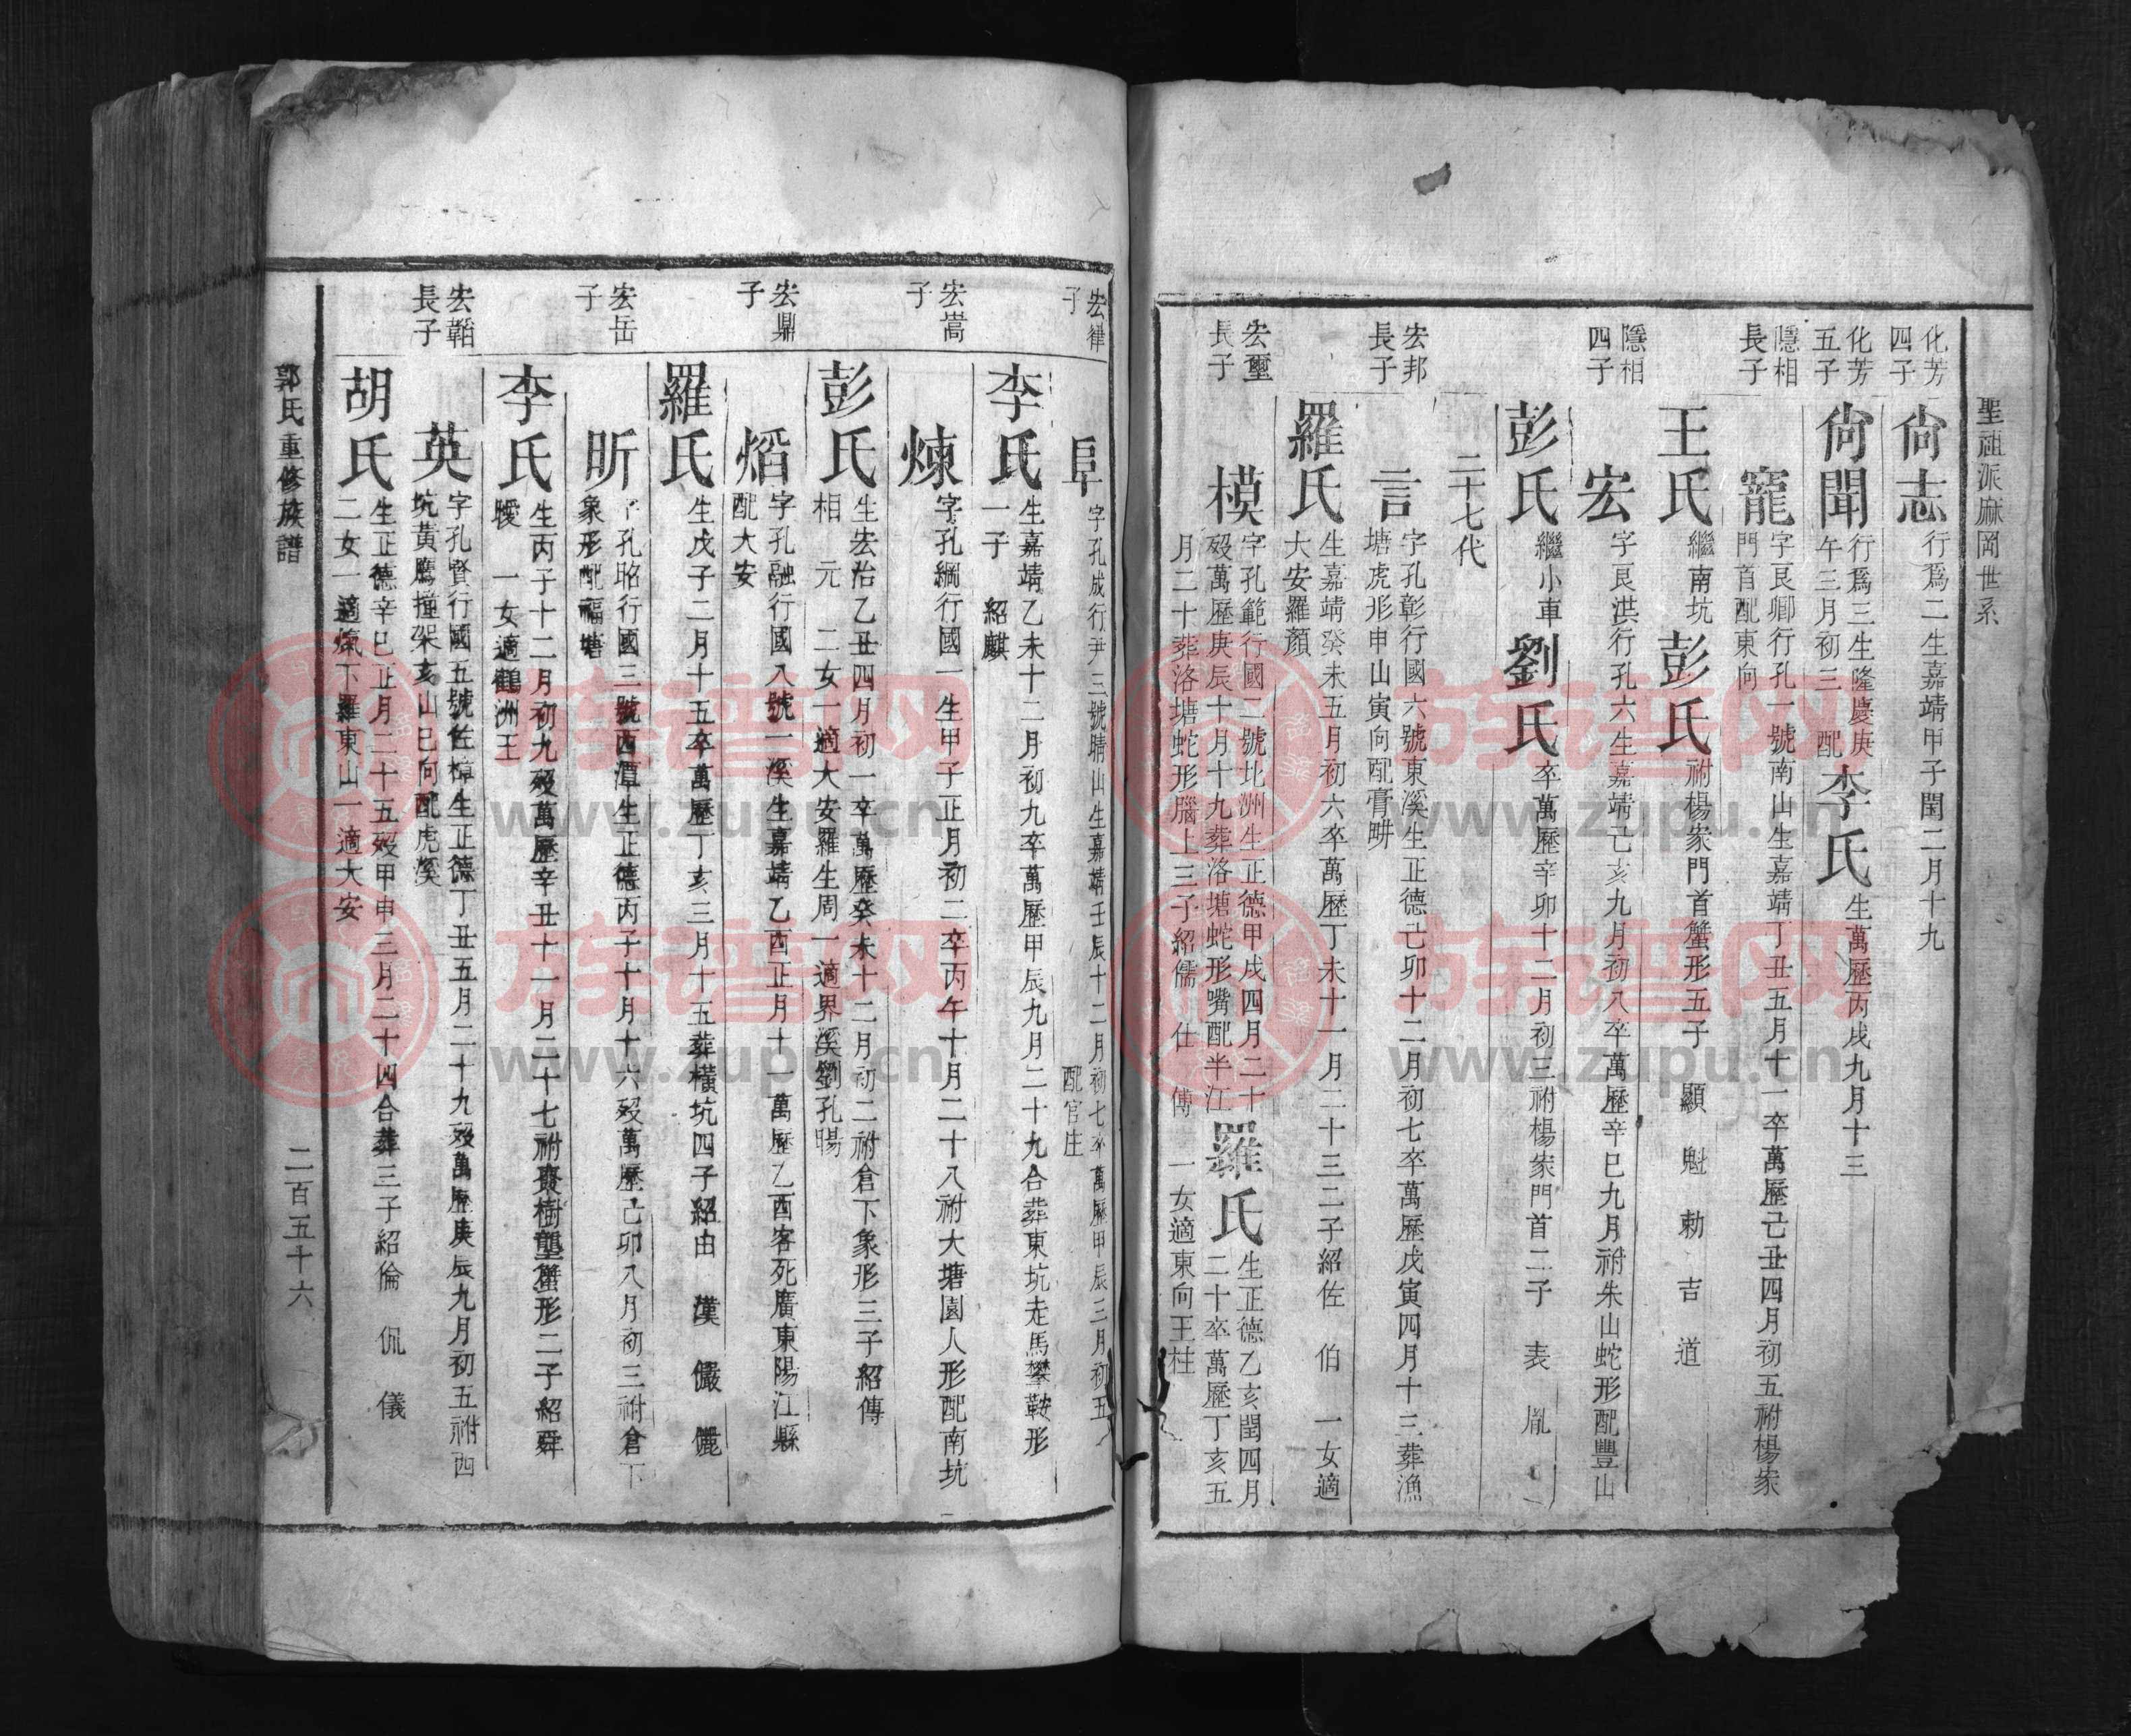 聖祖派麻岡世系
化芳四子
尙志行爲二生嘉靖甲子閏二月十九
化芳五子
尙聞行爲三生隆慶庚午三月初三 配李氏生萬歷丙戌九月十三
隱相長子
寵字艮卿行孔一號南山生嘉靖丁丑五月十一卒萬歷己丑四月初五祔楊家門首配東向
王氏繼南坑彭氏祔楊家門首蟹形五子 顯 魁 勅 吉 道
隱相四子
宏字艮洪行孔六生嘉靖己亥九月初八卒萬歷辛巳九月祔朱山蛇形配豐山
彭氏繼小車劉氏卒萬歷辛卯十二月初三祔楊家門首二子 表 胤
二十七代
宏邦長子
言字孔彰行國六號東溪生正德己卯十二月初七卒萬歷戊寅四月十三葬漁塘虎形申山寅向配膏畊
羅氏生嘉靖癸未五月初六卒萬歷丁未十一月二十三二子紹佐 伯 一女適大安羅顏
宏璽長子
模字孔範行國二號北洲生正德甲戌四月二十歿萬歷庚辰十月十九葬洛塘蛇形嘴配半江羅氏生正德乙亥閏四月二十卒萬歷丁亥五
月二十葬洛塘蛇形腦上三子紹儒 仕 傅 一女適東向王柱
宏律子
阜字孔成行尹三號晴山生嘉靖壬辰十二月初七卒萬歷甲辰三月初五配官庄
李氏生嘉靖乙未十二月初九卒萬歷甲辰九月二十九合葬東坑走馬攀鞍形一子 紹麒
宏嵩子
煉字孔綱行國一生甲子正月初二卒丙午十月二十八祔大塘園人形配南坑
彭氏生宏治乙丑四月初一卒萬歷癸未十二月初二祔倉下象形三子紹傳 相 元 二女一適大安羅生周一適界溪劉孔暘
宏鼎子
熖字孔融行國八號一溪生嘉靖乙酉正月十一萬歷乙酉客死廣東陽江縣配大安
羅氏生戊子二月十五卒萬歷丁亥三月十五葬橫坑四子紹由 漢 儼 儷
宏岳子
昕字孔昭行國三號西潭生正德丙子十月十六歿萬歷己卯八月初三祔倉下象形配福塘
李氏生丙子十二月初九歿萬歷辛丑十一月二十七祔棗樹壟蟹形二子紹舜 曖 一女適鶴洲王
宏韜長子
英字孔賢行國五號佐樟生正德丁丑五月二十九歿萬歷庚辰九月初五祔西坑黃鷹撞架亥山巳向配虎溪
胡氏生正德辛巳正月二十五歿甲申三月二十四合葬三子紹倫 侃 儀 二女一適下羅東山一適大安
郭氏重修族譜
二百五十六
族谱网
www.zupu.cn
族谱网
www.zupu.cn
族谱网
www.zupu.cn
族谱网
www.zupu.cn